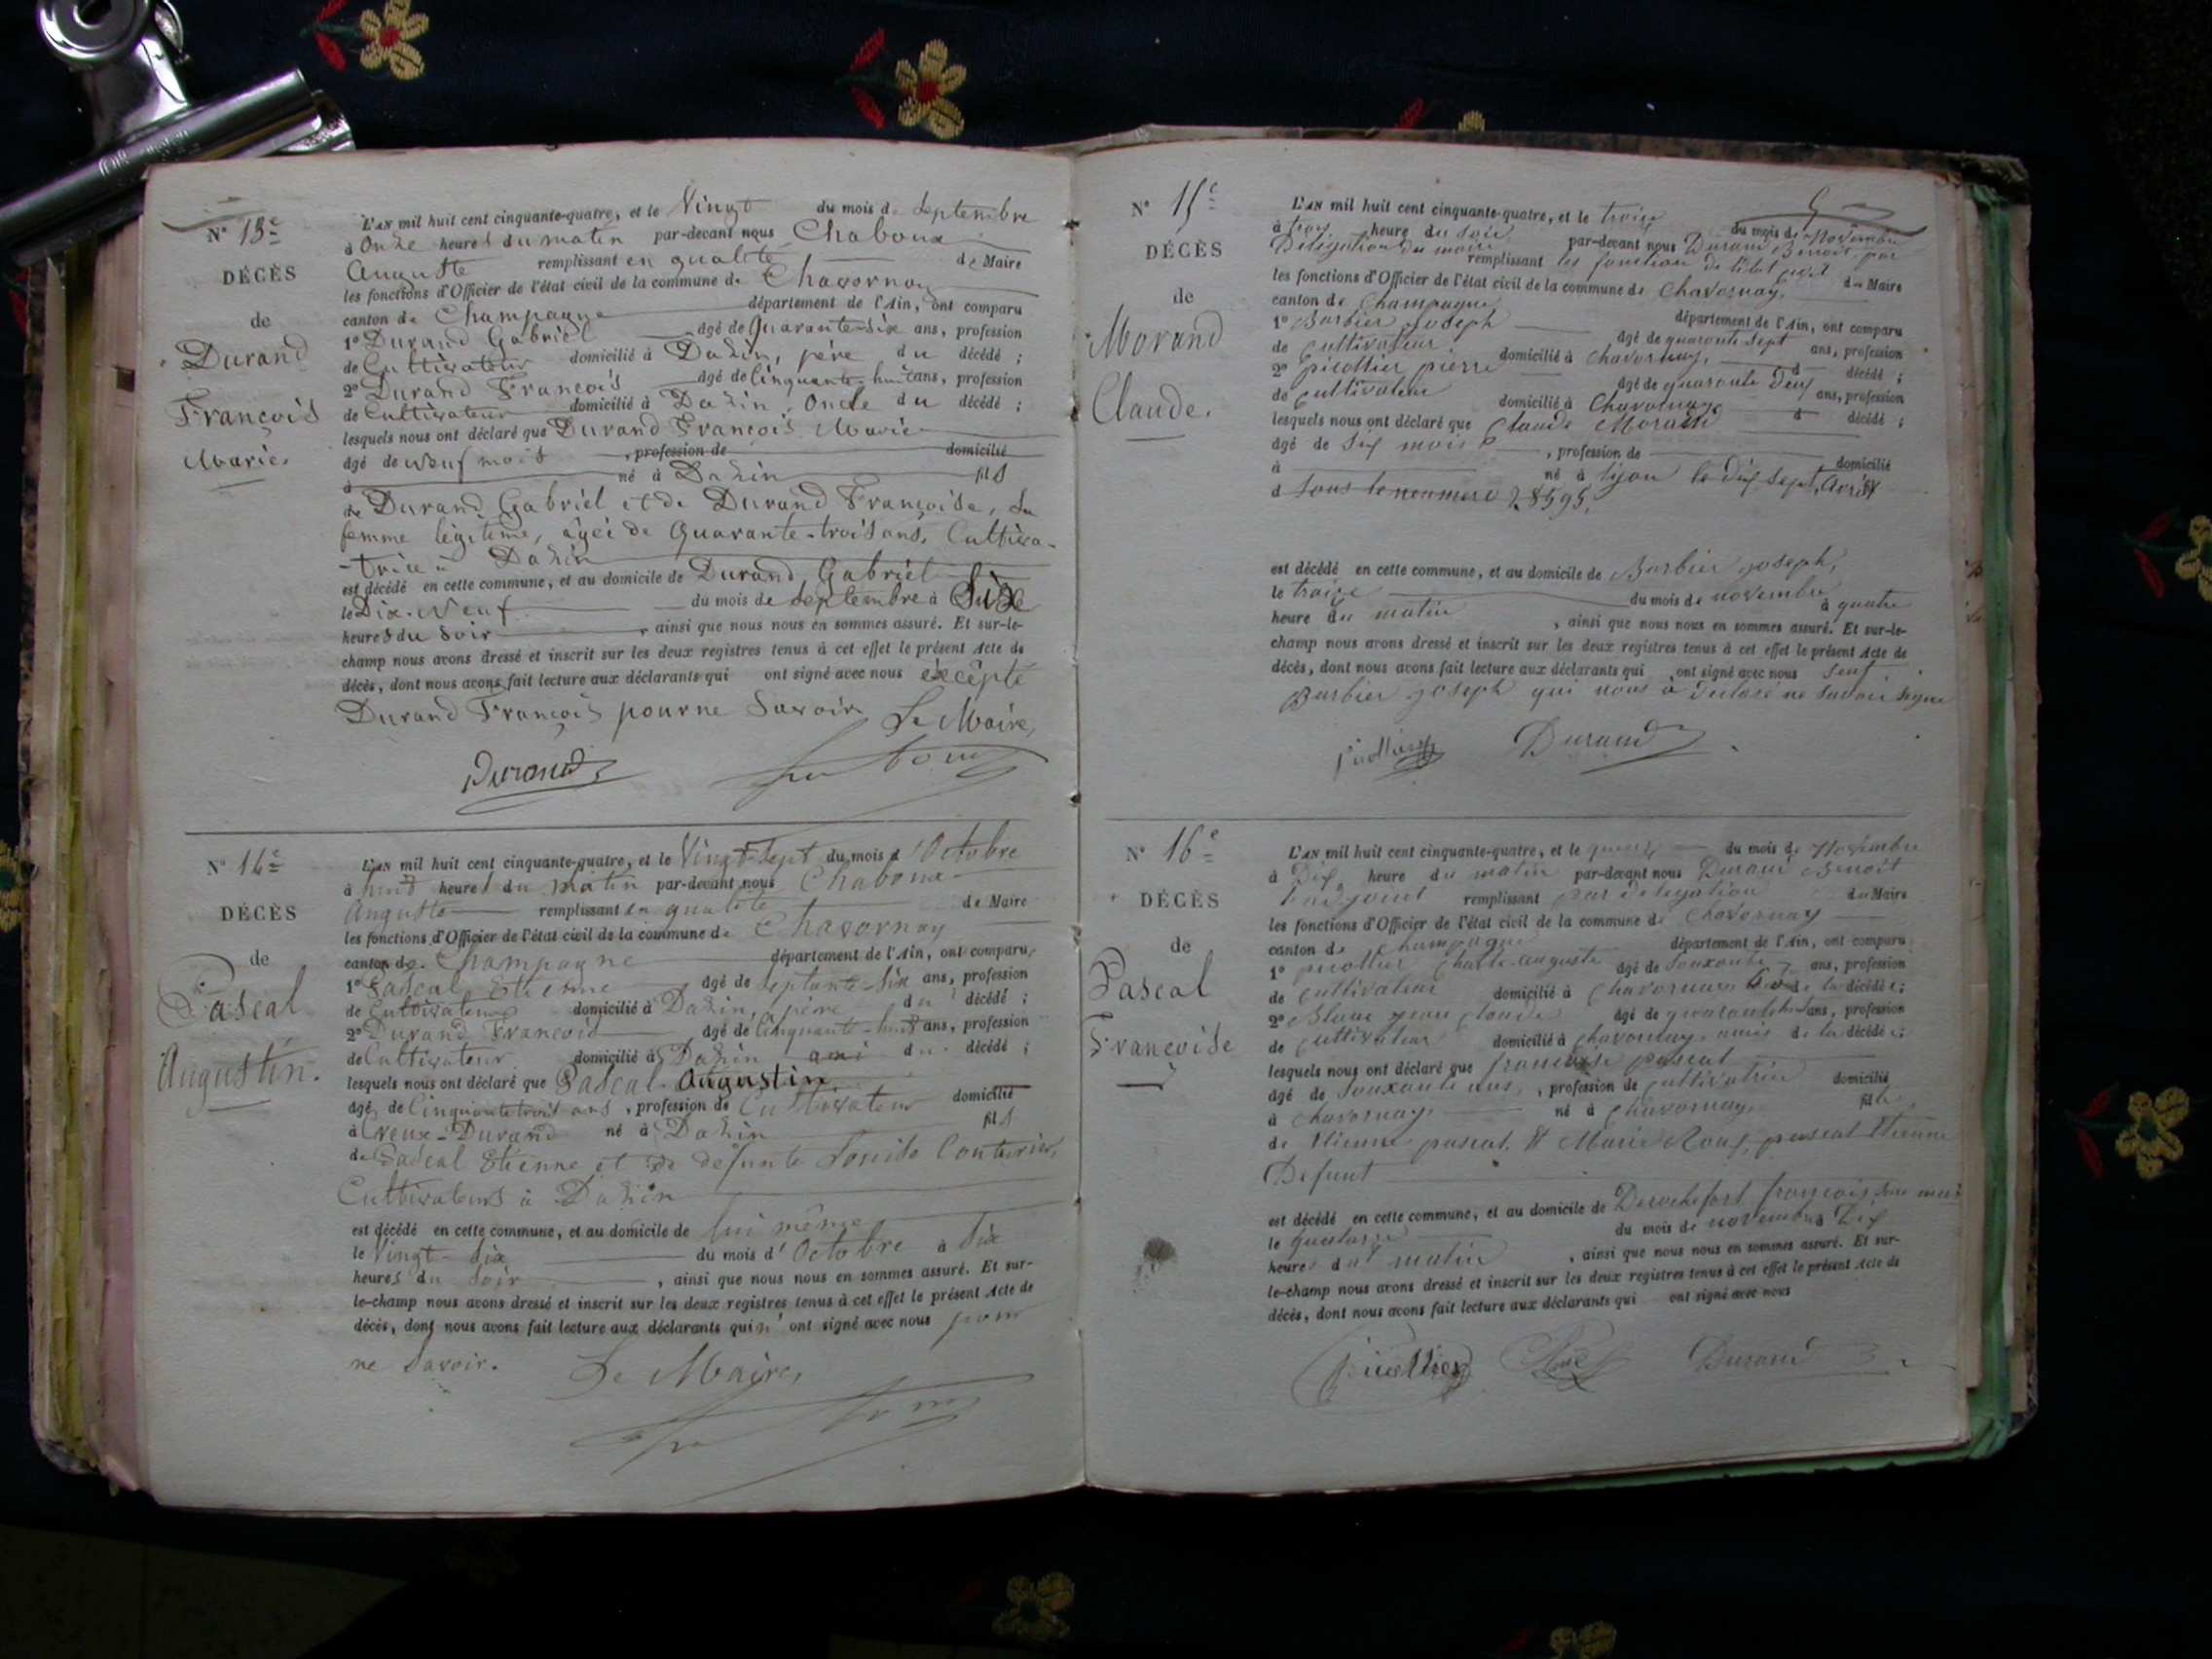 N° 13e
DÉCÈS
de
Durand
François
Marie.
L'AN mil huit cent cinquante-quatre, et le Vingt du mois de Septembre
à Onze heures du matin par-devant nous Chaboux
Auguste remplissant en qualité de Maire
les fonctions d'Officier de l'état civil de la commune de Chavornay
canton de Champagne département de l'Ain, ont comparu
1° Durand Gabriel âgé de Quarante-six ans, profession
de Cultivateur domicilié à Dazin, père du décédé ;
2° Durand François âgé de Cinquante-huit ans, profession
de Cultivateur domicilié à Dazin, Oncle du décédé ;
lesquels nous ont déclaré que Durand François Marie
âgé de Neuf mois , profession de domicilié
à né à Dazin fils
de Durand Gabriel et de Durand Françoise, Sa
femme légitime, âgée de Quarante-trois ans, Cultiva-
-trice à Dazin
est décédé en cette commune, et au domicile de Durand Gabriel
le Dix-Neuf du mois de Septembre à Six
heures du Soir , ainsi que nous nous en sommes assuré. Et sur-le-
champ nous avons dressé et inscrit sur les deux registres tenus à cet effet le présent Acte de
décès, dont nous avons fait lecture aux déclarants qui ont signé avec nous excêpté
Durand François pour ne Savoir Le Maire,
Durand
N° 14e
DÉCÈS
de
Pascal
Augustin.
L'AN mil huit cent cinquante-quatre, et le Vingt-Sept du mois d'Octobre
à huit heures du matin par-devant nous Chaboux
Auguste remplissant en qualité de Maire
les fonctions d'Officier de l'état civil de la commune de Chavornay
canton de Champagne département de l'Ain, ont comparu
1° Pascal Etienne âgé de Septante-Six ans, profession
de Cultivateur domicilié à Dazin, père du décédé ;
2° Durand François âgé de Cinquante-huit ans, profession
de Cultivateur domicilié à Dazin ami du décédé ;
lesquels nous ont déclaré que Pascal Augustin
âgé de Cinquante trois ans , profession de Cultivateur domicilié
à Creux-Durand né à Dazin fils
de Pascal Etienne et de défunte Couturier,
Cultivateurs à Dazin
est décédé en cette commune, et au domicile de lui même
le Vingt-Six du mois d'Octobre à Six
heures du Soir , ainsi que nous nous en sommes assuré. Et sur-
le-champ nous avons dressé et inscrit sur les deux registres tenus à cet effet le présent Acte de
décès, dont nous avons fait lecture aux déclarants qui n'ont signé avec nous pour
ne Savoir. Le Maire,
N° 15e
DÉCÈS
de
Morand
Claude.
L'AN mil huit cent cinquante-quatre, et le treize du mois de Novembre
à trois heure du soir par-devant nous Durand Benoit par
Délégation du maire remplissant les fonction de l'état civil du Maire
les fonctions d'Officier de l'état civil de la commune de Chavornay,
canton de Champagne département de l'Ain, ont comparu
1° Barbier Joseph âgé de quarante sept ans, profession
de Cultivateur domicilié à Chavornay, d décédé ;
2° picollier pierre âgé de quarante Deux ans, profession
de Cultivateur domicilié à Chavornay d décédé ;
lesquels nous ont déclaré que Claude Morand
âgé de Six mois , profession de domicilié
à né à lyon le dix Sept Avril
d Sous le numero 28595,
est décédé en cette commune, et au domicile de Barbier Joseph,
le treize du mois de novembre à quatre
heure du matin , ainsi que nous nous en sommes assuré. Et sur-le-
champ nous avons dressé et inscrit sur les deux registres tenus à cet effet le présent Acte de
décès, dont nous avons fait lecture aux déclarants qui ont signé avec nous Seuf
Barbier Joseph qui nous à Déclaré ne Savoir signe
Durand
N° 16e
DÉCÈS
de
Pascal
Françoise
L'AN mil huit cent cinquante-quatre, et le quinze du mois de Novembre
à Dix heure du matin par-devant nous Durand Benoit
adjoint remplissant par delegation du Maire
les fonctions d'Officier de l'état civil de la commune de Chavornay
canton de Champagne département de l'Ain, ont comparu
1° picollier Charle auguste âgé de Souxante 7 ans, profession
de Cultivateur domicilié à Chavornay de la décédée ;
2° Blanc jean Claude âgé de quarante huit ans, profession
de Cultivateur domicilié à Chavornay, amis de la décédée ;
lesquels nous ont déclaré que françoise pascal
âgé de Souxante ans, , profession de Cultivatrice domicilié
à Chavornay, né à Chavornay, fille
de Etienne pascal, et Marie Roux, pascal Etienne
Defunt
est décédé en cette commune, et au domicile de Derochefort françois, Son mari
le quatorze du mois de novembre à Dix
heures du matin , ainsi que nous nous en sommes assuré. Et sur-
le-champ nous avons dressé et inscrit sur les deux registres tenus à cet effet le présent Acte de
décès, dont nous avons fait lecture aux déclarants qui ont signé avec nous
picollier Blanc Durand